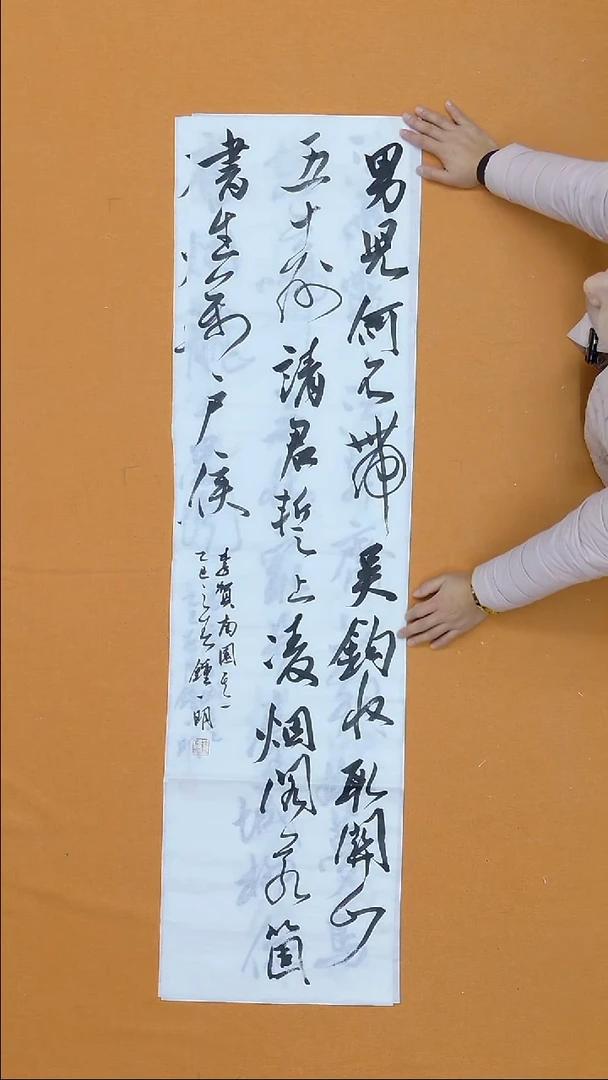 男兒何不帶吴鈎收取關山
五十州請君暫上凌烟閣若箇
書生萬户侯
李賀南園其一
乙巳之春鍾一明